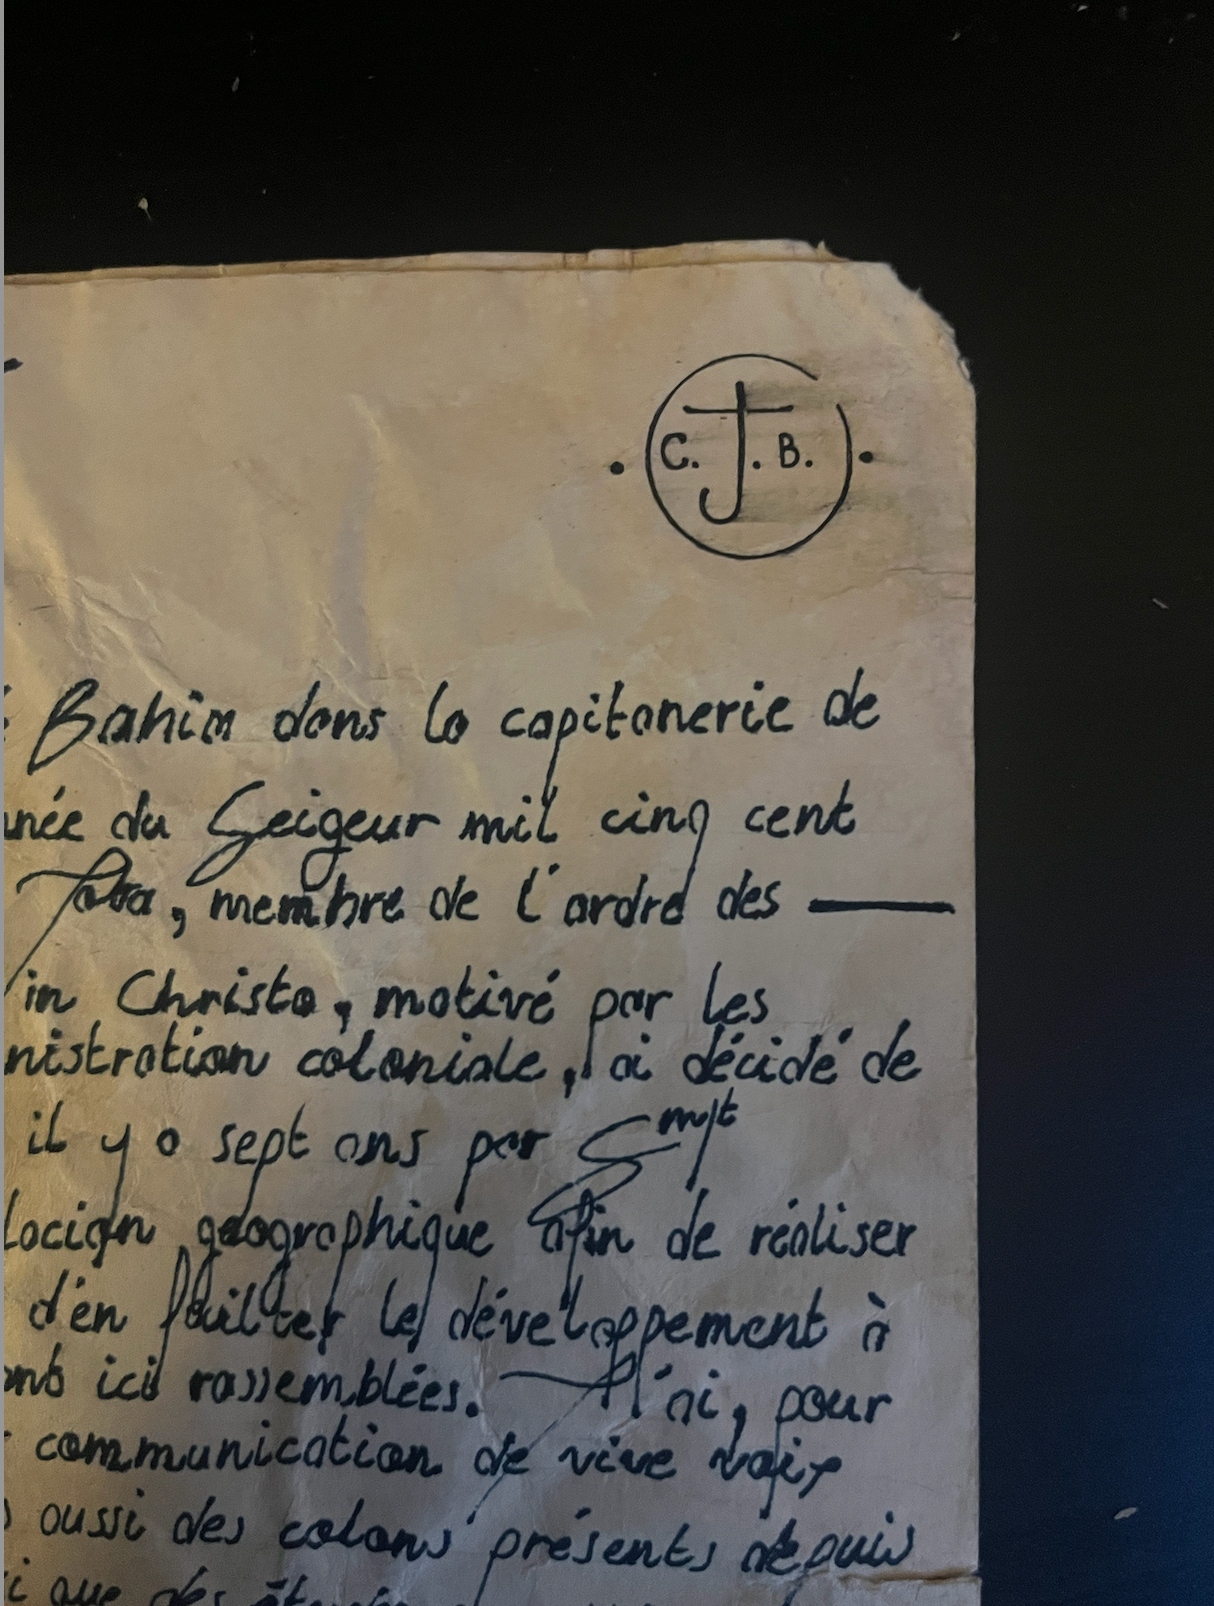 C. J. B.
Bahia dans la capitanerie de
née du Seigeur mil cinq cent
, membre de l'ordre des —
in Christo, motivé par les
nistration coloniale, ai décidé de
il y a sept ans par
location géographique afin de réaliser
d'en le développement à
ici rassemblées. J'ai, pour
communication de vive voix
aussi des colons présents depuis
que des